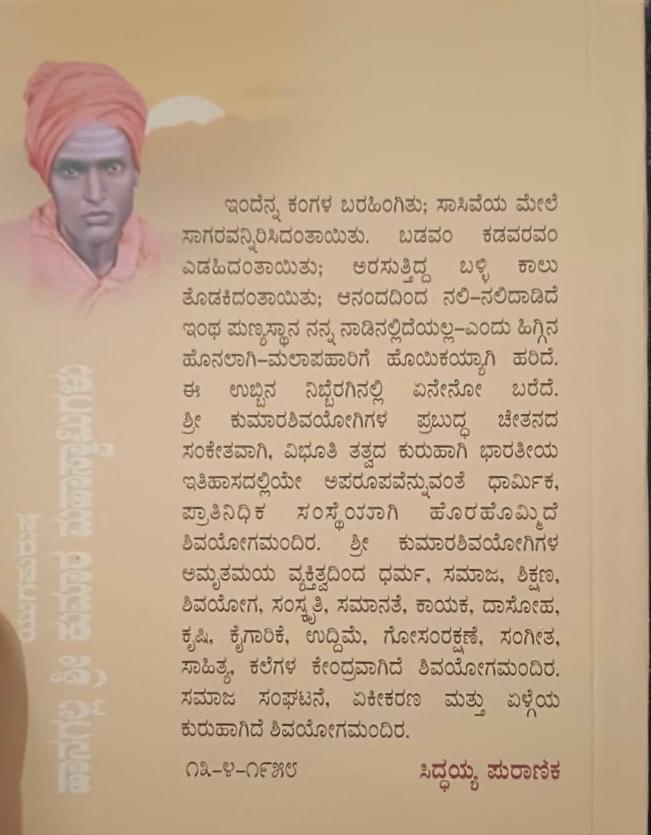 ಇಂದೆನ್ನ ಕಂಗಳ ಬರಹಿಂಗಿತು; ಸಾಸಿವೆಯ ಮೇಲೆ
ಸಾಗರವನ್ನಿರಿಸಿದಂತಾಯಿತು. ಬಡವಂ ಕಡವರವಂ
ಎಡಹಿದಂತಾಯಿತು; ಅರಸುತ್ತಿದ್ದ ಬಳ್ಳಿ ಕಾಲು
ತೊಡಕಿದಂತಾಯಿತು; ಆನಂದದಿಂದ ನಲಿ-ನಲಿದಾಡಿದೆ
ಇಂಥ ಪುಣ್ಯಸ್ಥಾನ ನನ್ನ ನಾಡಿನಲ್ಲಿದೆಯಲ್ಲ-ಎಂದು ಹಿಗ್ಗಿನ
ಹೊನಲಾಗಿ-ಮಲಾಪಹಾರಿಗೆ ಹೊಯಿಕಯ್ಯಾಗಿ ಹರಿದೆ.
ಈ ಉಬ್ಬಿನ ನಿಬ್ಬೆರಗಿನಲ್ಲಿ ಏನೇನೋ ಬರೆದೆ.
ಶ್ರೀ ಕುಮಾರಶಿವಯೋಗಿಗಳ ಪ್ರಬುದ್ಧ ಚೇತನದ
ಸಂಕೇತವಾಗಿ, ವಿಭೂತಿ ತತ್ವದ ಕುರುಹಾಗಿ ಭಾರತೀಯ
ಇತಿಹಾಸದಲ್ಲಿಯೇ ಅಪರೂಪವೆನ್ನುವಂತೆ ಧಾರ್ಮಿಕ,
ಪ್ರಾತಿನಿಧಿಕ ಸಂಸ್ಥೆಯಾಗಿ ಹೊರಹೊಮ್ಮಿದೆ
ಶಿವಯೋಗಮಂದಿರ. ಶ್ರೀ ಕುಮಾರಶಿವಯೋಗಿಗಳ
ಅಮೃತಮಯ ವ್ಯಕ್ತಿತ್ವದಿಂದ ಧರ್ಮ, ಸಮಾಜ, ಶಿಕ್ಷಣ,
ಶಿವಯೋಗ, ಸಂಸ್ಕೃತಿ, ಸಮಾನತೆ, ಕಾಯಕ, ದಾಸೋಹ,
ಕೃಷಿ, ಕೈಗಾರಿಕೆ, ಉದ್ದಿಮೆ, ಗೋಸಂರಕ್ಷಣೆ, ಸಂಗೀತ,
ಸಾಹಿತ್ಯ, ಕಲೆಗಳ ಕೇಂದ್ರವಾಗಿದೆ ಶಿವಯೋಗಮಂದಿರ.
ಸಮಾಜ ಸಂಘಟನೆ, ಏಕೀಕರಣ ಮತ್ತು ಏಳ್ಗೆಯ
ಕುರುಹಾಗಿದೆ ಶಿವಯೋಗಮಂದಿರ.
೧೩-೪-೧೯೫೮ ಸಿದ್ಧಯ್ಯ ಪುರಾಣಿಕ
ಯುಗಪುರುಷ
ಹಾನಗಲ್ಲ ಶ್ರೀ ಕುಮಾರ ಮಹಾಸ್ವಾಮಿಗಳು